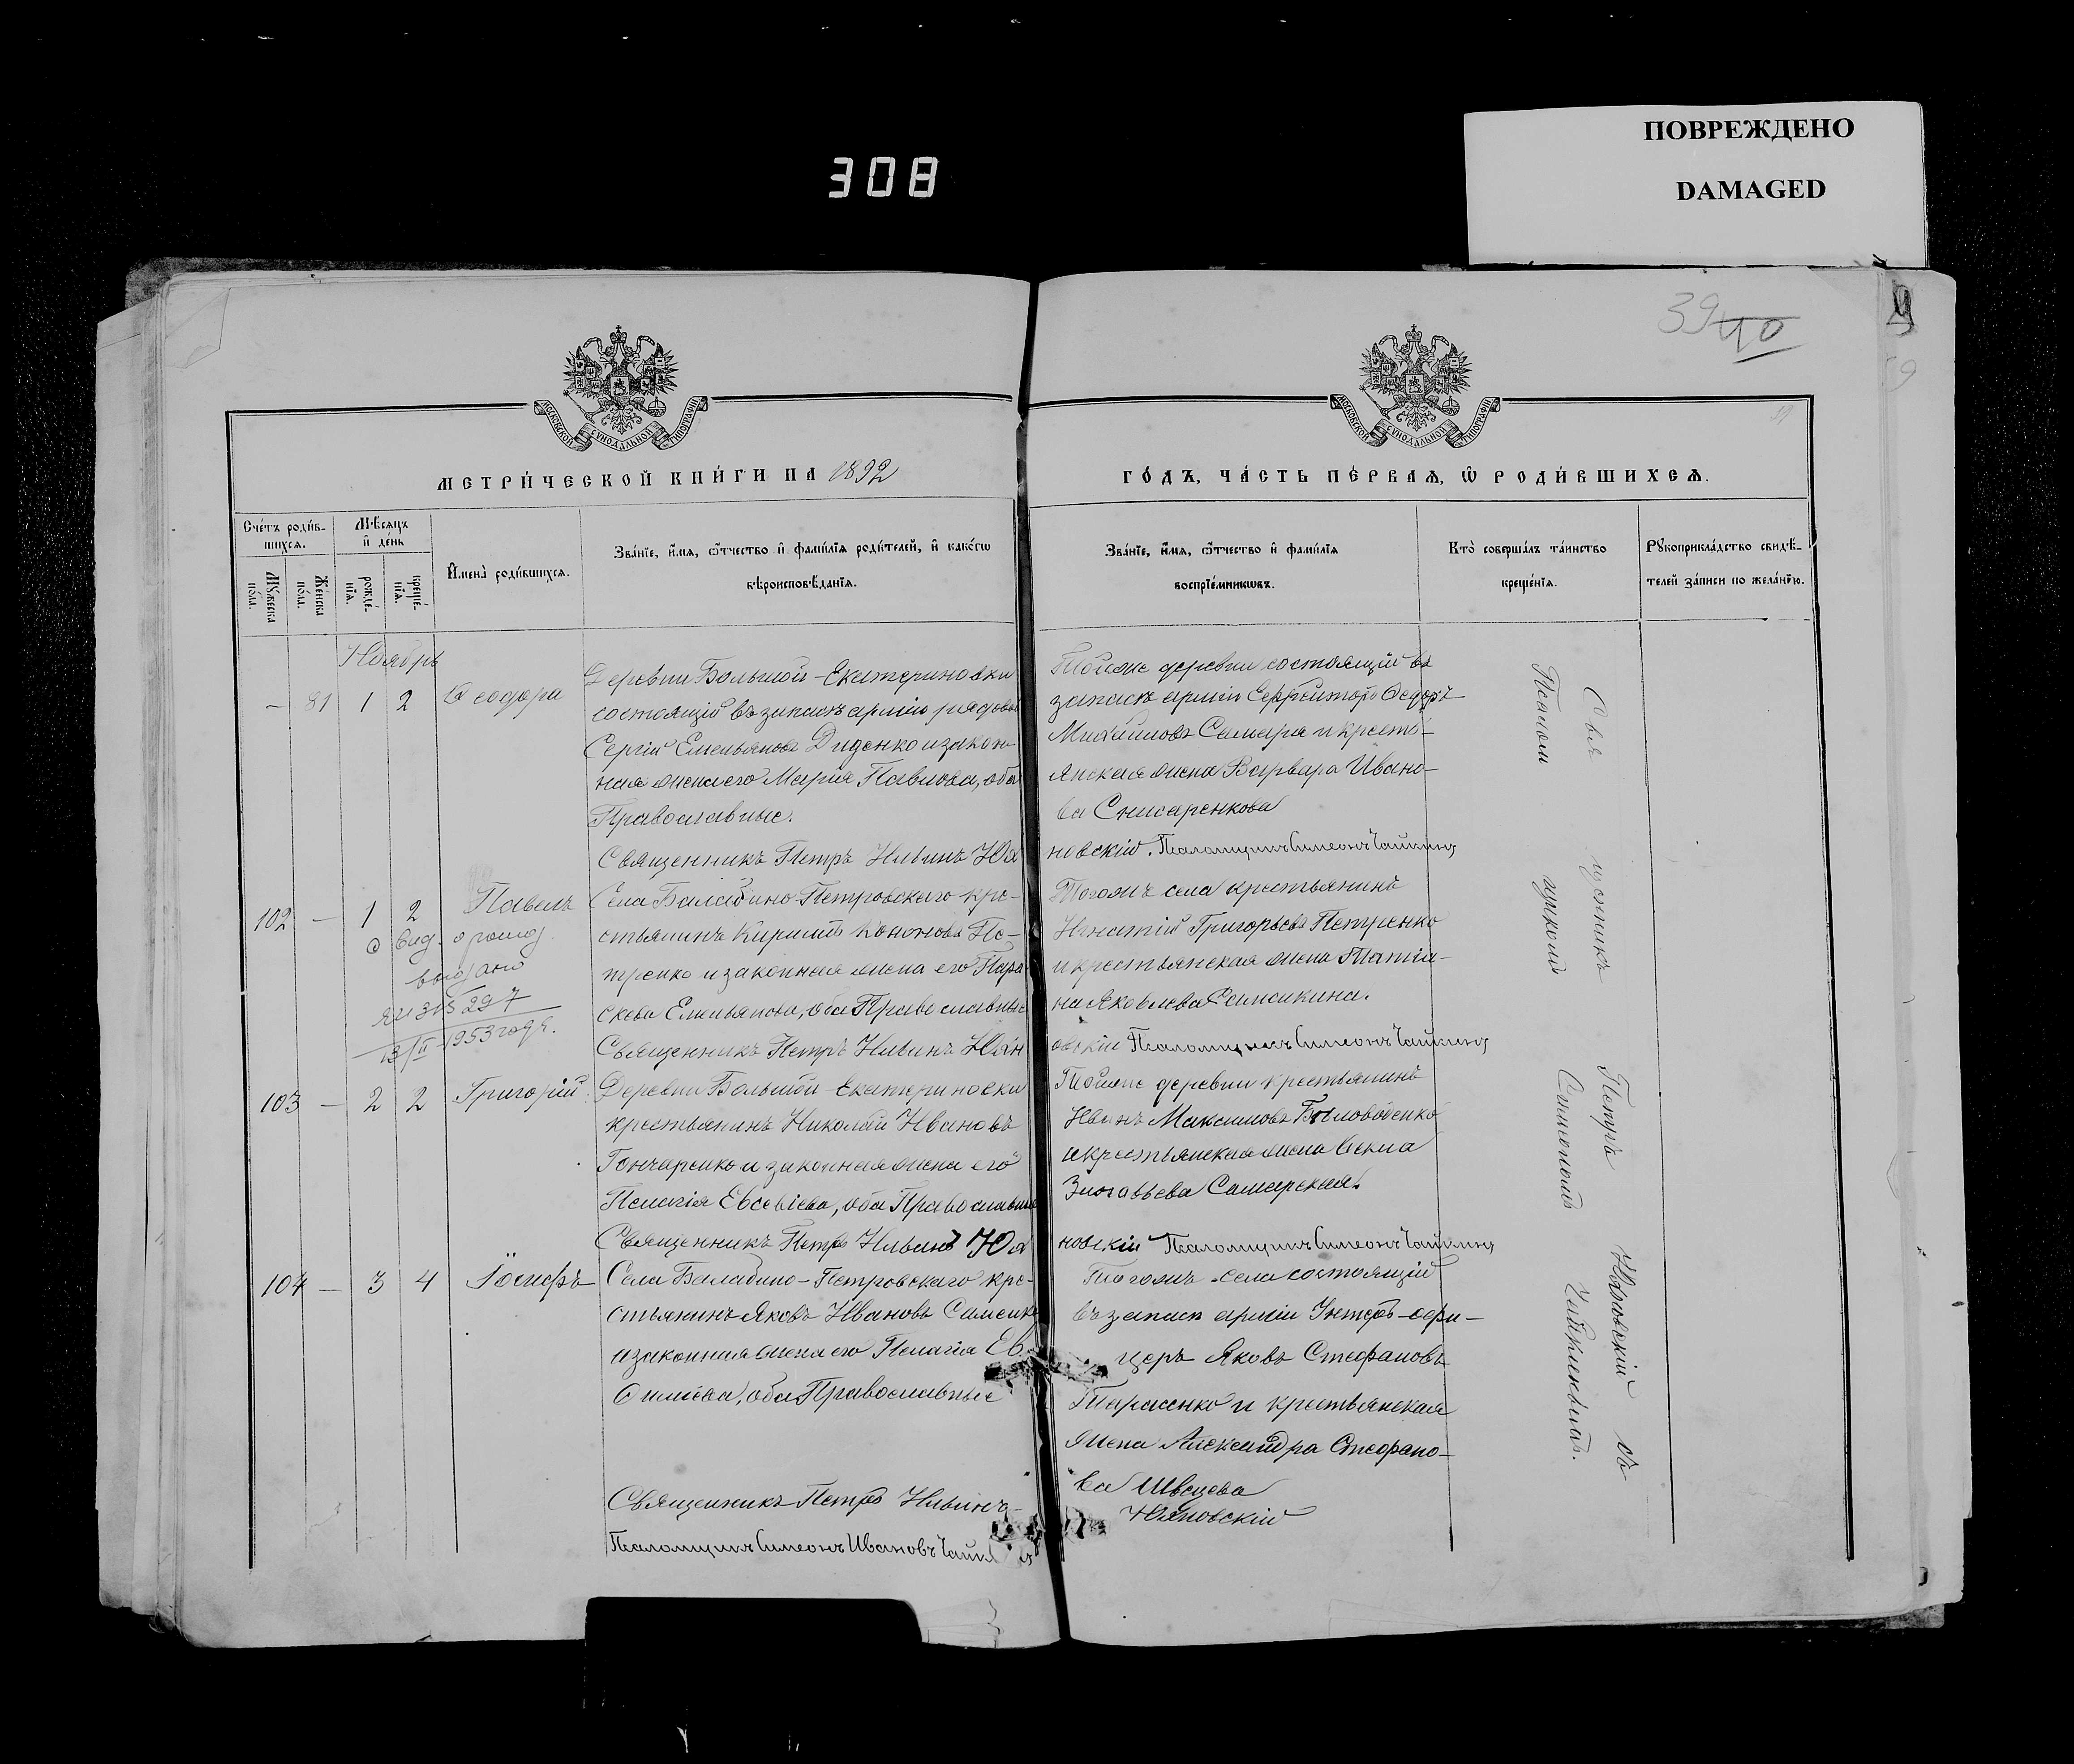 308
ПОВРЕЖДЕНО
DAMAGED
39 40
МОСКОВСКОЙ СУНОДАЛЬНОЙ ТИПОГРАФІИ
МОСКОВСКОЙ СУНОДАЛЬНОЙ ТИПОГРАФІИ
МЕТРИ́ЧЕСКОЙ КНИ́ГИ НА 1892
ГО́ДЪ, ЧА́СТЬ ПЕ́РВАѦ, Ѿ РОДИ́ВШИХСѦ.
Сче́тъ роди́в-
шихсѧ.
Мꙋ́жеска по́ла.
Же́нска по́ла.
Мѣ́сѧцъ и҆ де́нь
рожде́-
нїѧ.
креще́-
нїѧ.
И҆мена̀ роди́вшихсѧ.
Зва́нїе, и҆́мѧ, ѻ҆́тчество и҆ фами́лїѧ роди́телей, и҆ како́гѡ
вѣроисповѣ́данїѧ.
Зва́нїе, и҆́мѧ, ѻ҆́тчество и҆ фами́лїѧ
воспрїе́мникѡвъ.
Кто̀ соверша́лъ та́инство
креще́нїѧ.
Рꙋкоприкла́дство свидѣ́-
телей за́писи по жела́нїю.
Ноябрь
— 81 1 2 Ѳеодора
Деревни Большой-Екатериновки
состоящій въ запасѣ арміи рядовой
Сергій Емельяновъ Диденко и закон-
ная жена его Марія Павлова, оба
Православные.
Священникъ Петръ Ильинъ Юя
Тойже деревни состоящій въ
запасѣ арміи Ефрейторъ Ѳедоръ
Михайловъ Самара и кресть-
янская жена Варвара Ивано-
ва Снисаренкова
новскій. Псаломщикъ Симеонъ Чайкинъ
102 — 1 2 Павелъ
О вид. о рожд.
выдано
ЯИ 3 № 297
13/II 1953 года.
Села Балабино-Петровскаго кре-
стьянинъ Кириллъ Кононовъ Пе-
тренко и законная жена его Пара-
скева Емельянова, оба Православные
Священникъ Петръ Ильинъ Юян
Тогожъ села крестьянинъ
Игнатій Григорьевъ Петренко
и крестьянская жена Татіа-
на Яковлева Самсикина.
овскій Псаломщикъ Симеонъ Чайкинъ
103 — 2 2 Григорій
Деревни Большой-Екатериновки
крестьянинъ Николай Ивановъ
Гончаренко и законная жена его
Пелагія Евсевіева, оба Православные
Священникъ Петръ Ильинъ Юя
Тойже деревни крестьянинъ
Иванъ Максимовъ
и крестьянская жена
Зиновьева Самарская.
новскій Псаломщикъ Симеонъ Чайкинъ
104 — 3 4 Іосифъ
Села Балабино-Петровскаго кре-
стьянинъ Яковъ Ивановъ
и законная жена его Пелагія Ев
ѳиміева, оба Православные
Священникъ Петръ Ильинъ
Псаломщикъ Симеонъ Ивановъ
Тогожъ села состоящій
въ запасѣ арміи Унтеръ-офи-
церъ Яковъ Стефановъ
Тарасенко и крестьянская
жена Александра Стефано-
ва Швецова
Юяновскій
Священникъ Петръ Юяновскій съ
Псаломщикомъ Симеономъ Чайкинымъ.